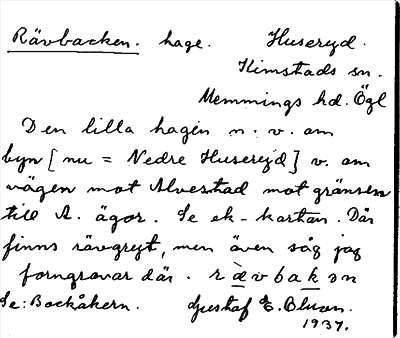 Rävbacken. hage. Huseryd.
Kimstads sn.
Memmings hd. Ögl
Den lilla hagen n. v. om
byn [nu = Nedre Huseryd] v. om
vägen mot Alvestad mot gränsen
till A. ägor. Se ek-kartan. Där
finns rävgryt, men även såg jag
forngravar där. rävbakən
Se: Bockåkern. Gustaf E. Bluon.
1937.